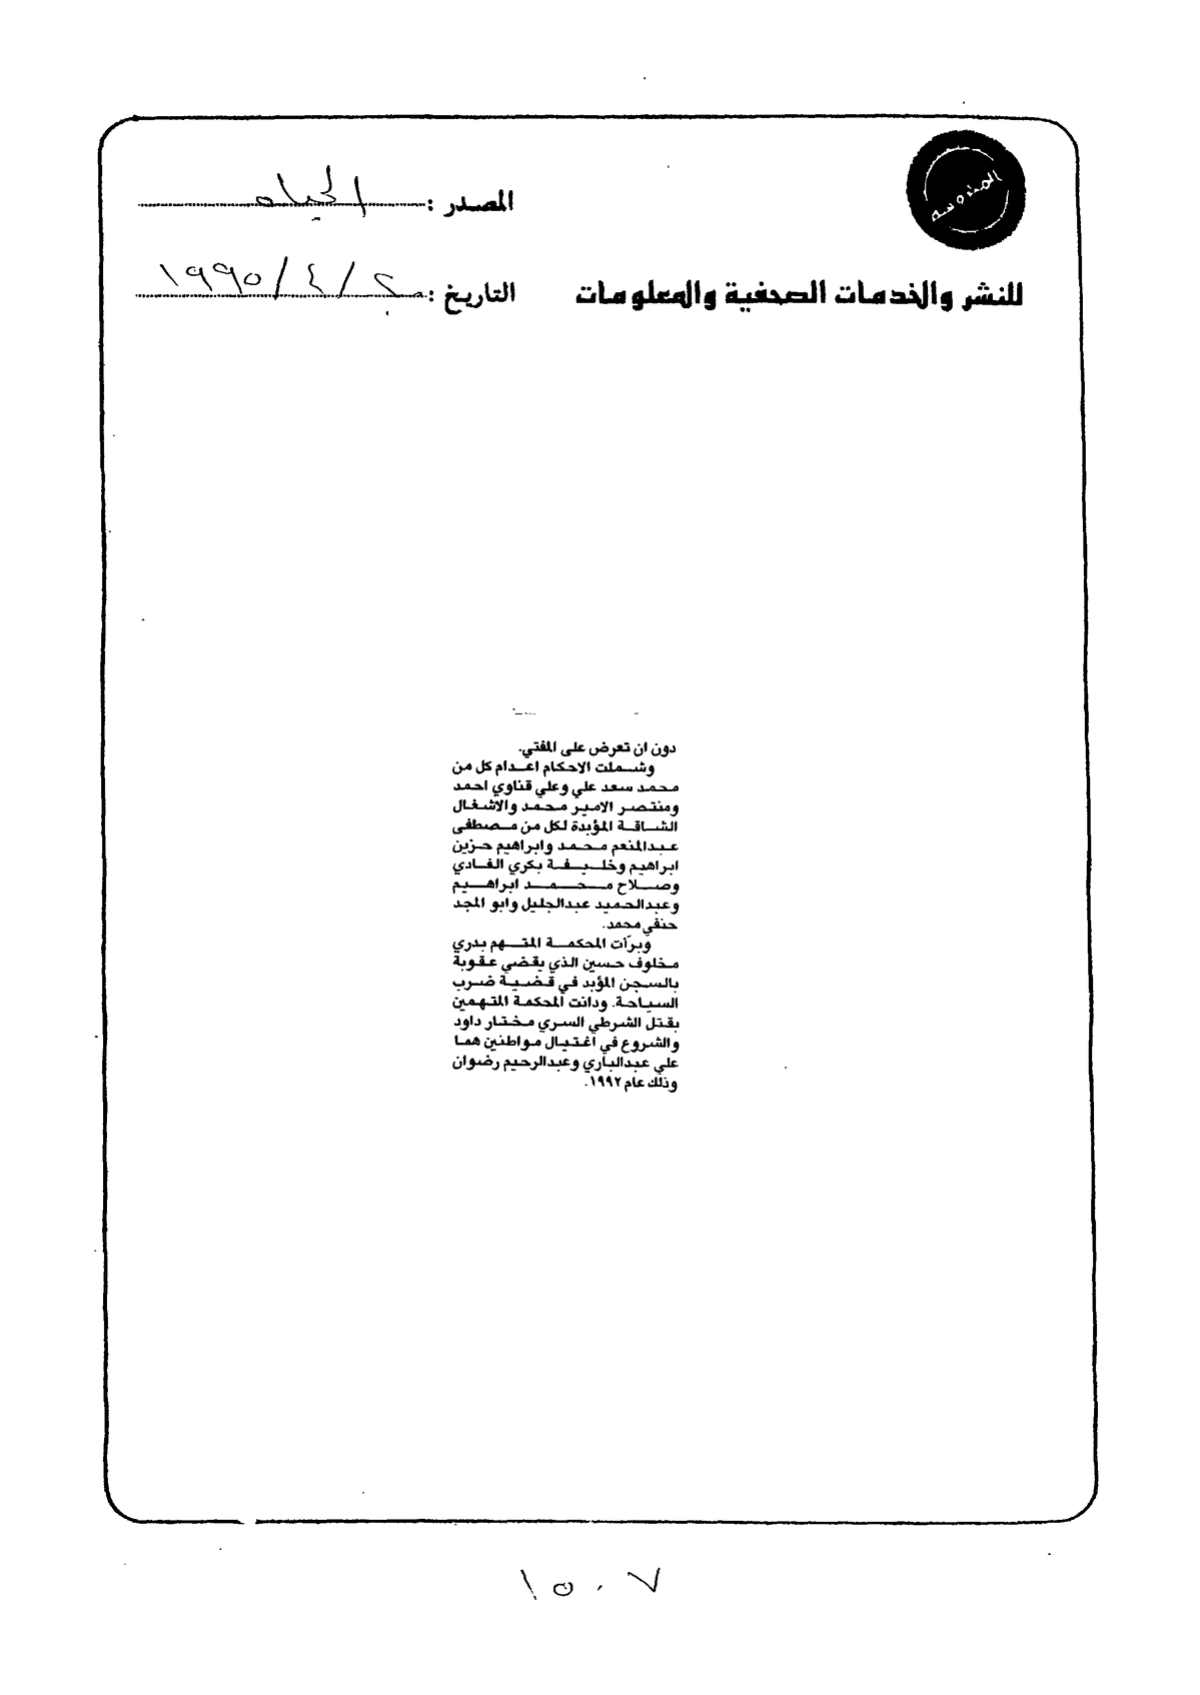 المدروسة
المصدر : الحياه
للنشر والخدمات الصحفية والمعلومات
التاريخ : ٢٠ / ٤ / ١٩٩٥
دون ان تعرض على المفتي.
وشملت الاحكام اعدام كل من
محمد سعد علي وعلي قناوي احمد
ومنتصر الامير محمد والاشغال
الشاقة المؤبدة لكل من مصطفى
عبدالمنعم محمد وابراهيم حزين
ابراهيم وخليفة بكري الغادي
وصلاح محمد ابراهيم
وعبدالحميد عبدالجليل وابو المجد
حنفي محمد.
وبرّأت المحكمة المتهم بدري
مخلوف حسين الذي يقضي عقوبة
بالسجن المؤبد في قضية ضرب
السياحة. ودانت المحكمة المتهمين
بقتل الشرطي السري مختار داود
والشروع في اغتيال مواطنين هما
علي عبدالباري وعبدالرحيم رضوان
وذلك عام ١٩٩٢.
١٥٠٧